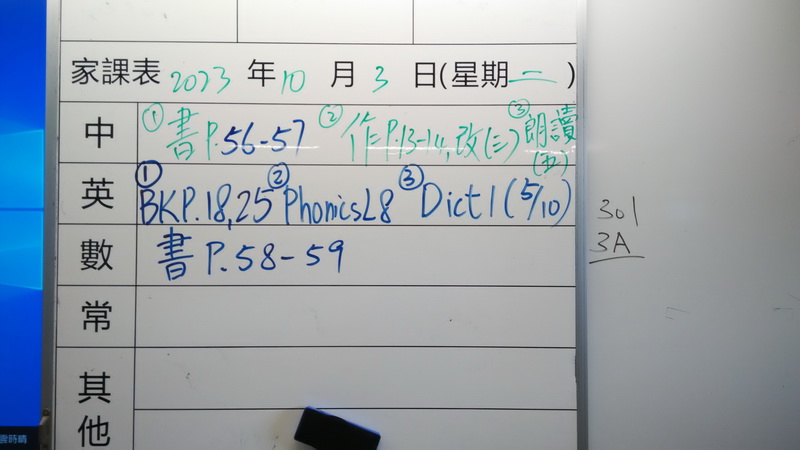 家課表 2023 年 10 月 3 日(星期二)
中 ①書P.56-57 ②作P.13-14,改(三) ③朗讀(五)
英 ①BKP.18,25 ②PhonicsL8 ③Dict1(5/10)
數 書P.58-59
常
其他
301
3A
雲時晴